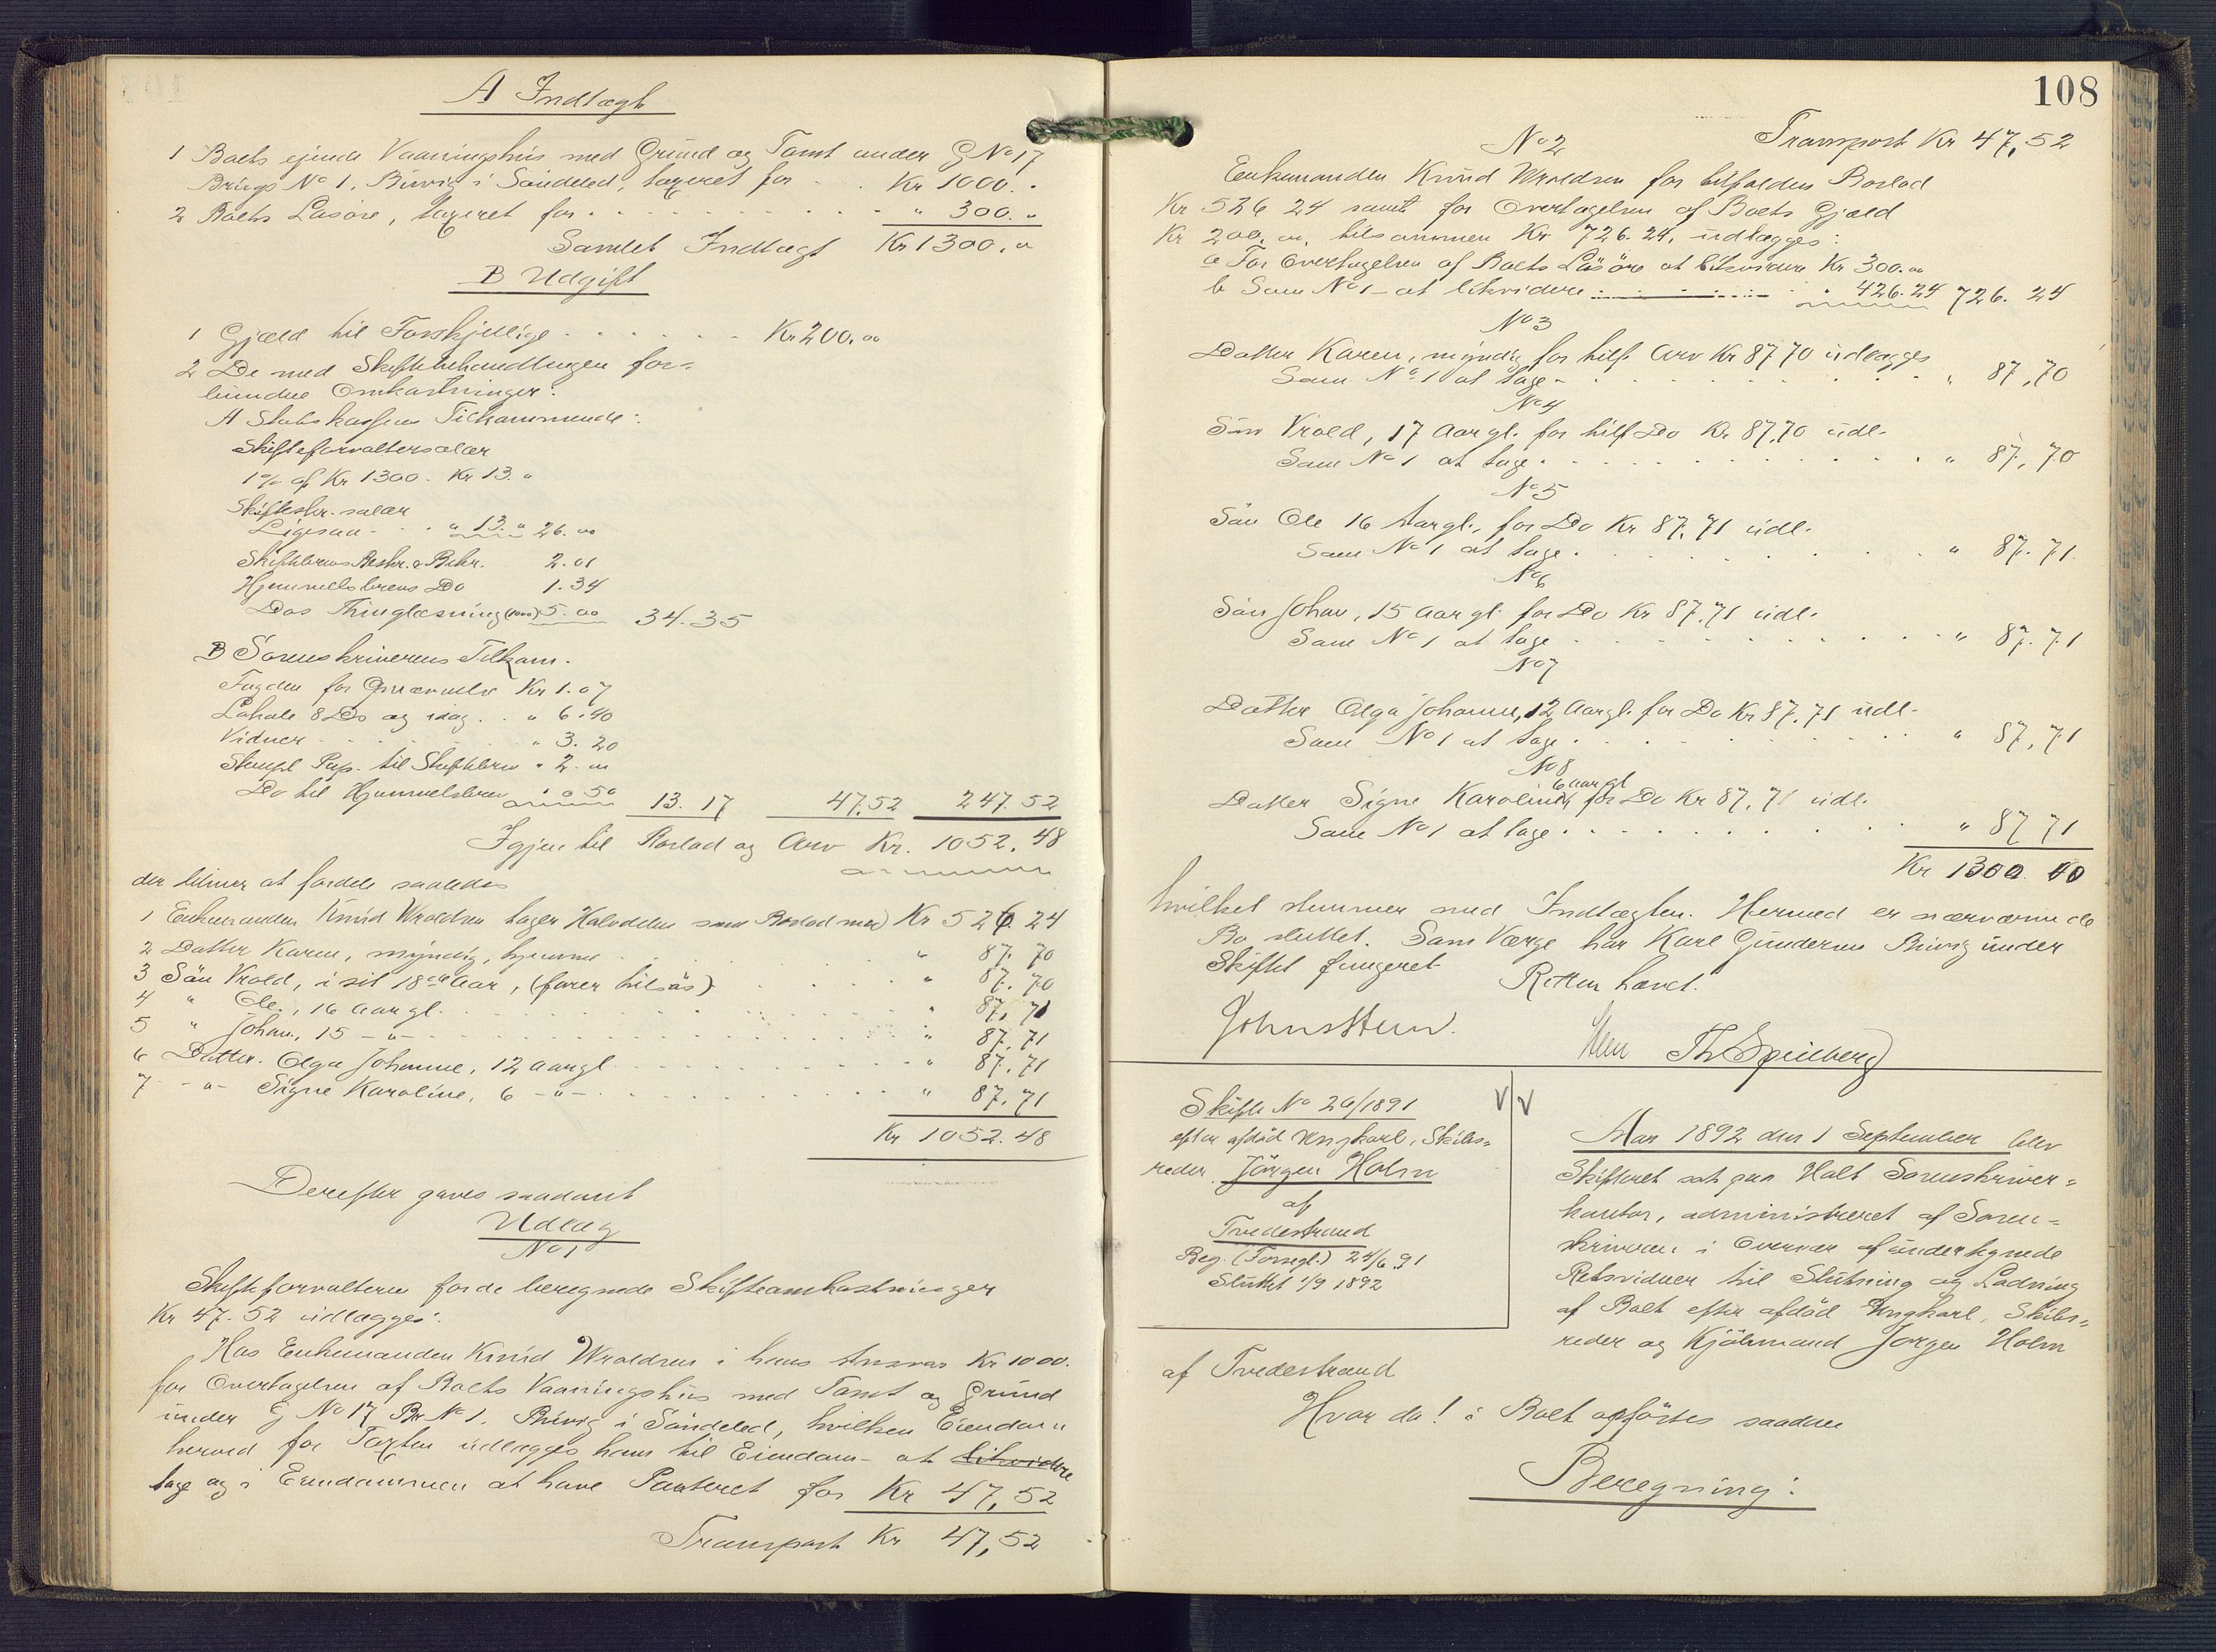 A Indtægt
1 Boets eiende Vaaningshus med Grund og Tomt under G No 17
Brugs No 1, Buvig i Söndeled, taxeret for . . Kr 1000. "
2 Boets Løsøre, taxeret for . . . . . . . . . " 300. "
Samlet Indtægt Kr 1300. 00
B Udgift
1 Gjæld til Forskjellige . . . . . . Kr 200. 00
2 De med Skiftebehandlingen for=
bundne Omkostninger:
A Statskassen Tilkommende:
Skifteforvaltersalær
1% af Kr 1300. Kr 13. "
Skifteskr. salær
Ligesaa - . . " 13. " 26. 00
Skiftebrevs Beskr. & Bekr. 2. 01
Hjemmelsbrevs Do 1. 34
Dos Thinglæsning (1000) 5. 00 34. 35
B Sorenskriverens Tilkom.
Fogden for Kr 1. 07
Lokale 8 Do og idag . . " 6. 40
Vidner . . . " 3. 20
Stempl Pap. til Skiftebrev " 2. 00
Do til Hjemmelsbrev " 0 50 13. 17 47,52 247. 52
Igjen til Boslod og Arv Kr. 1052. 48
der bliver at fordele saaledes
1 Enkemanden Knud Wroldsen tager Halvdelen som Boslod med Kr 526. 24
2 Datter Karen, myndig, hjemme . . . " 87. 70
3 Sön Vrold, i sit 18de Aar, (farer tilsös) . . . " 87. 70
4 " Ole, 16 Aar gl. . . . " 87. 71
5 " Johan, 15 -"- . . . " 87. 71
6 Datter. Olga Johanne, 12 Aar gl . . . " 87. 71
7 -"- Signe Karoline, 6 -"- . . . " 87. 71
Kr 1052. 48
Derefter gaves saadant
Udlæg
No 1
Skifteforvalteren for de beregnede Skifteomkostninger
Kr 47. 52 udlægges:
Hos Enkemanden Knud Wroldsen i hans Ansvar Kr 1000.
for Overtagelsen af Boets Vaaningshus med Tomt og Grund
under G No 17 Br No 1. Buvig i Söndeled, hvilken Eiendom
herved for Taxten udlægges ham til Eiendom - at likvidere
tage og i Eiendommen at have Panteret for Kr 47,52
Transport Kr 47,52
108
No 2 Transport Kr 47,52
Enkemanden Knud Wroldsen for tilfalden Boslod
Kr 526 24 samt for Overtagelsen af Boets Gjæld
Kr 200. 00, tilsammen Kr 726. 24, udlægges:
a For Overtagelsen af Boets Lösöre at likvidere Kr 300. 00
b Som No 1 - at likvidere . . . " 426. 24 726. 24
No 3
Datter Karen, myndig for tilf. Arv Kr 87 70 udlægges
Som No 1 at tage . . . " 87,70
No 4
Sön Vrold, 17 Aar gl. for tilf Do Kr 87,70 udl.
Som No 1 at tage . . . " 87,70
No 5
Sön Ole 16 Aar gl., for Do Kr 87,71 udl.
Som No 1 at tage . . . " 87. 71
No 6
Sön Johan, 15 Aar gl. for Do Kr 87,71 udl.
Som No 1 at tage . . . " 87. 71
No 7
Datter Olga Johanne, 12 Aar gl. for Do Kr 87,71 udl.
Som No 1 at tage . . . " 87,71
No 8
6 Aar gl
Datter Signe Karoline, for Do Kr 87,71 udl.
Som No 1 at tage . . . " 87 71
Kr 1300 00
hvilket stemmer med Indtægten. Hermed er nærværende
Bo sluttet. Som Værge har Karl Gundersen Buvig under
Skiftet fungeret
Retten hævet.
Th Spilberg
V/V
Skifte No 26/1891
efter afdöd Ungkarl, Skibs=
reder Jörgen Holm
af
Tvedestrand
Beg. (Forsegl.) 24/6 91
Sluttet 1/9 1892
Aar 1892 den 1 September blev
Skifteret sat paa Holt Sorenskriver=
kontor, administreret af Soren=
skriveren i Overvær af undertegnede
Retsvidner til Slutning og Lodning
af Boet efter afdöd Ungkarl, Skibs=
reder og Kjöbmand Jørgen Holm
af Tvedestrand
Hvor da! i Boet opførtes saadan
Beregning: